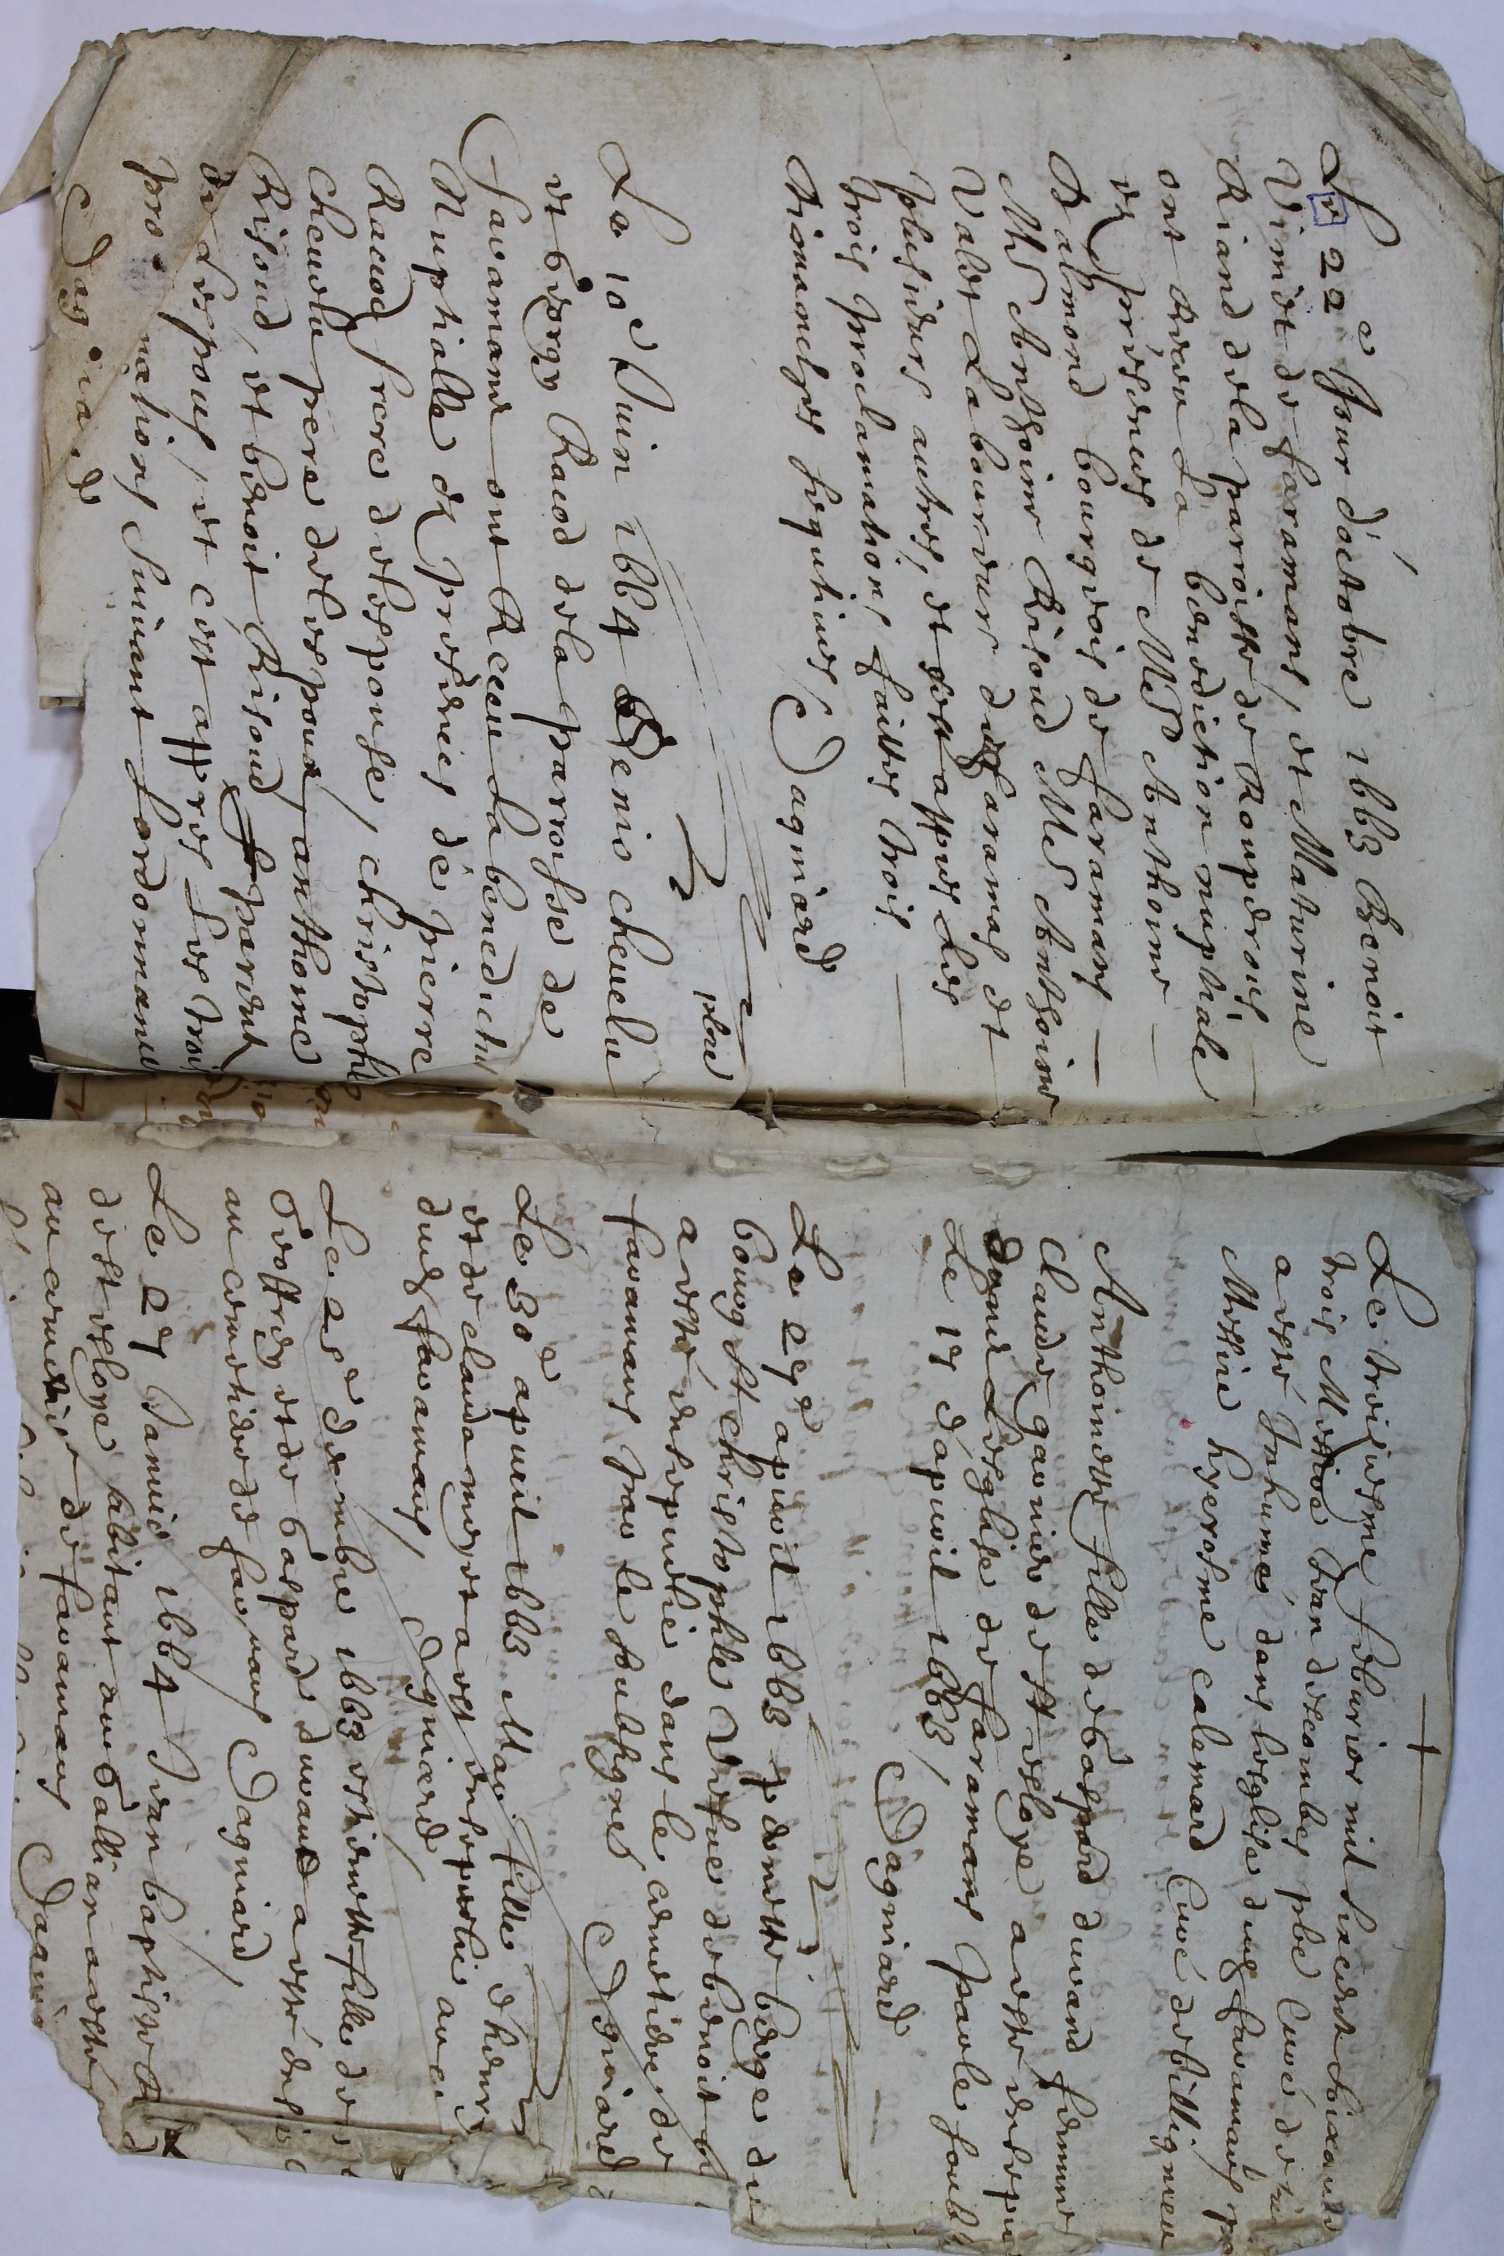 Le 22e Jour d'octobre 1663 Benoit
Vimidt de faramans, et Maturine
Riand de la parroisse de Rouperois,
ont Receu La benediction nuptiale
Ez presences de Me Anthoine
Balmond bourgeois de faramans
Me Anthoine Risoud Me Anthoine
Valet Laboureur du faramans et
plusieurs autres, et ce apres Les
trois proclamations faittes trois
Dimanches sequtives, Dagniard
Le 10e Juin 1664 Denis cheuelu
et George Racod de la parroisse de
faramans ont Receu La benediction
Nuphialle Ez presences de pierre
Racod frere de lespouse, christophle
cheuelu pere de lespoux, anthoine
Risoud, et benoit Risoud parent
de Lespoux, et c'est appres Les trois
pro mations Suivant Lordonnance
Dagniard
Le troisiesme feburier mil sixcent soixante
trois Messire Jean decombes pbre Curé de
a esté Inhumé dans leglise dud faramans p
Messire hyerosme calemard Curé de billigneu
Anthoinette fille de Gaspard durand femme
claude garnier de St esloye a esté ensepu
dans Leglise de faramans par le soub
Le 17 d'apuril 1663, Dagniard
Le 27e apuril 1663 pernette berge du
bourg St christophle Vefue de benoit
a esté ensepuelie dans le cemetiere de
faramans par le soubsigné Dagniard
Le 30e apuril 1663 Mar fille d'henry
et de clauda meyet a est ensepuelie au ce
dud faramans, Dagniard
Le 28e decembre 1663 estiennette fille de
Geoffrey et de Gaspard durand a esté ense
au cemetiere de faramans, Dagniard
Le 27 Januier 1664 Jean baptiste
de St esloye habitant au Gallian a esté
au cemetiere de faramans Dagnia